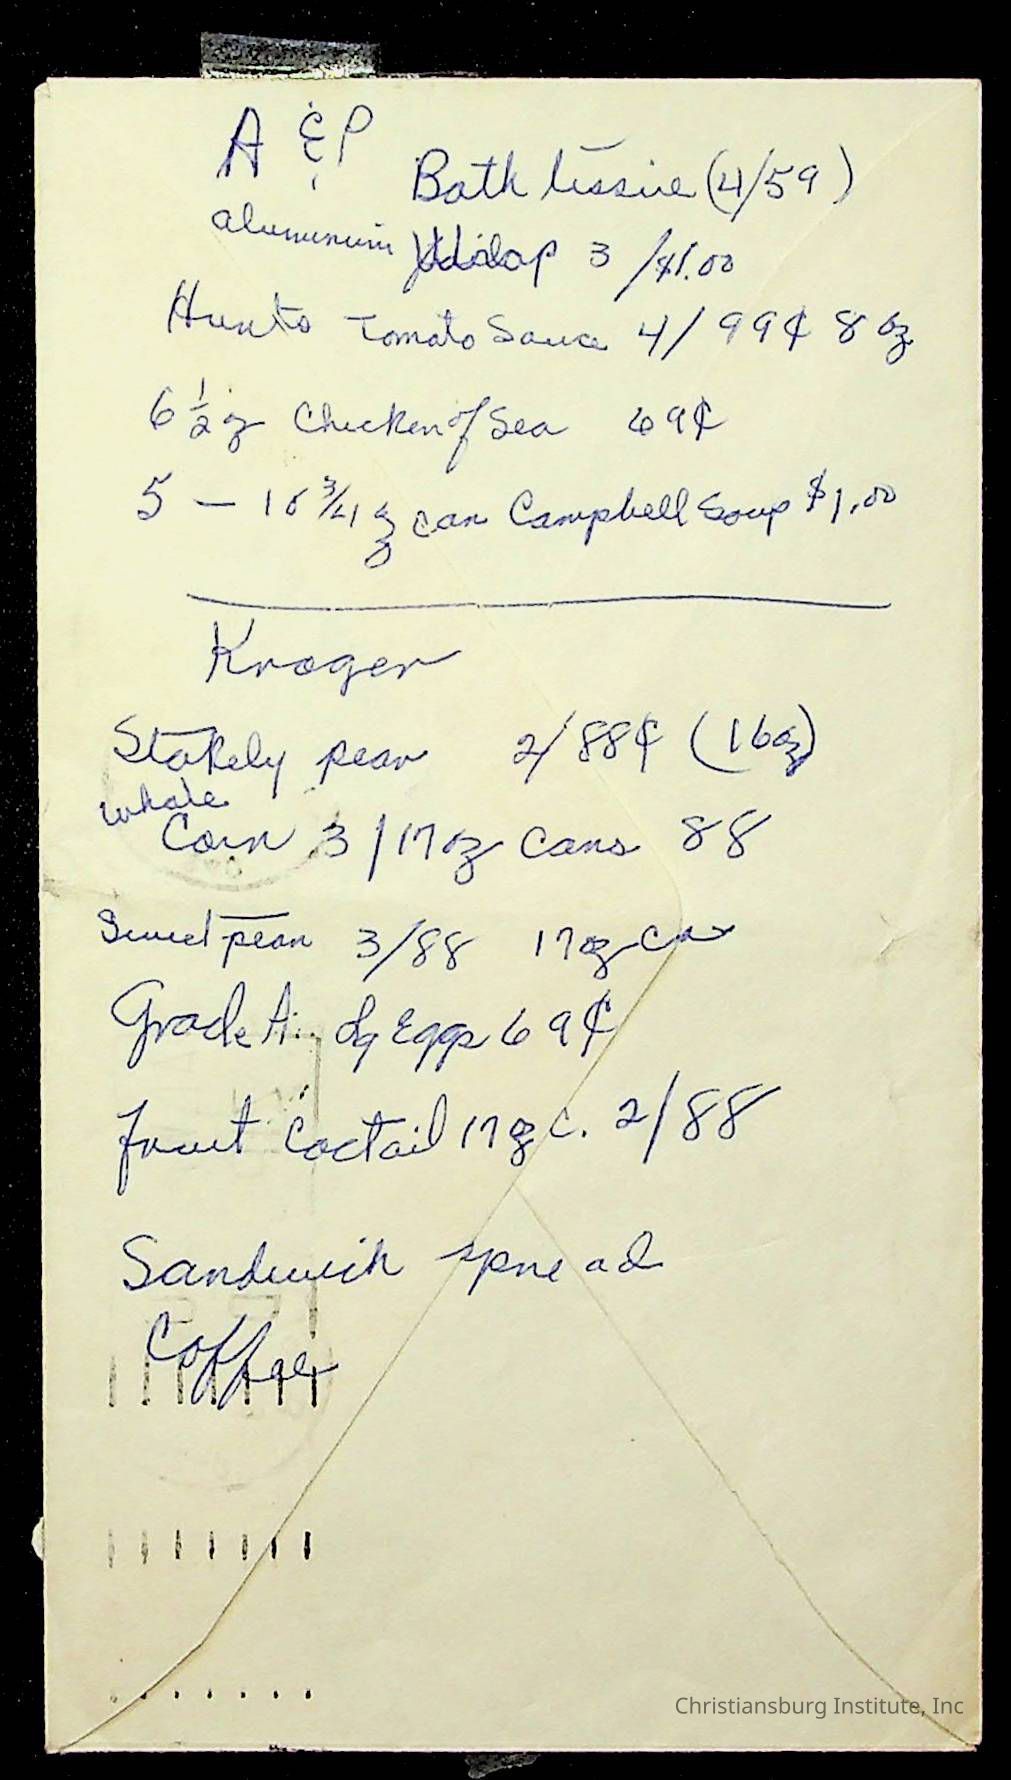 A & P
Bath tissue (4/59)
aluminum 3 / $1.00
Hunts Tomato Sauce 4/99¢ 8 oz
6 1/2 oz Chicken of Sea 69¢
5 — 10 3/4 oz can Campbell Soup $1.00
Kroger
Stokely pear 2/88¢ (16 oz)
whole
Corn 3/17 oz cans 88
Sweet peas 3/88 17 oz can
Grade A. Lg Eggs 69¢
fruit Coctail 17 oz c. 2/88
Sandwich spread
Coffee
Christiansburg Institute, Inc